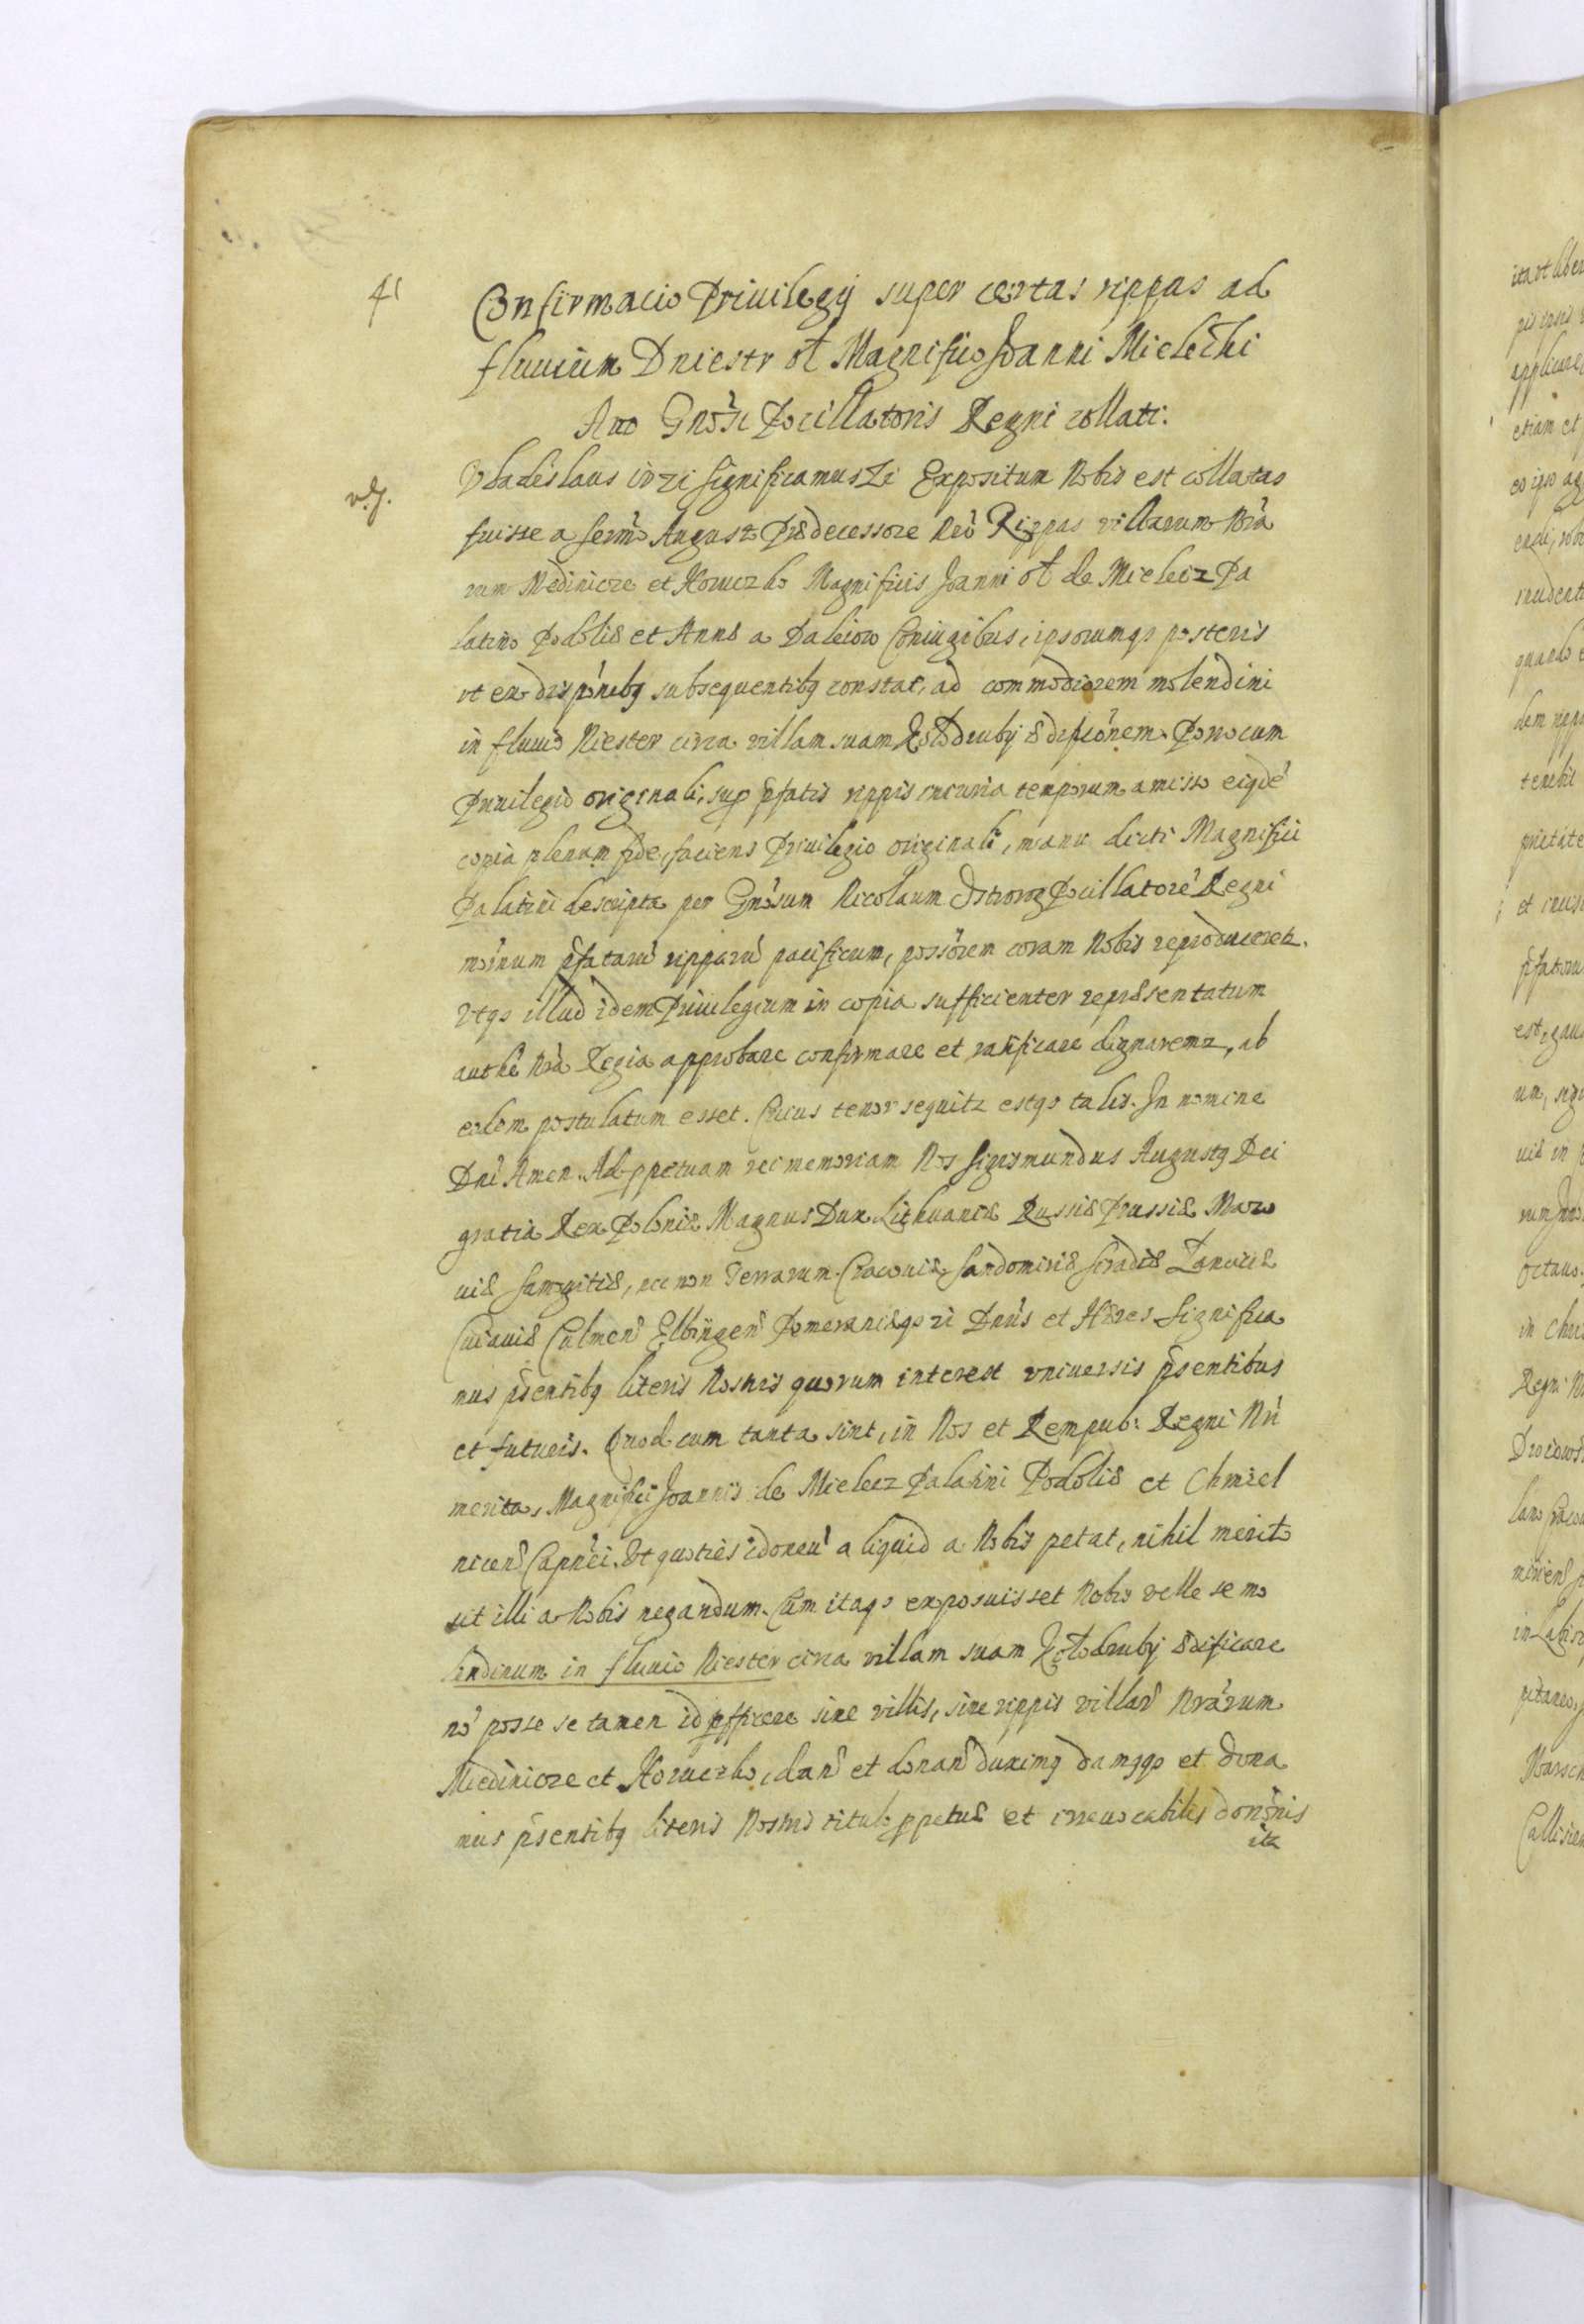 41
Confirmacio Priuilegij super certas rippas ad
fluuium Dniestr ol Magnifico Joanni Mielecki
Anō Gnōsi Pocillatoris Regni collati.
Vladislaus Significamus Expositum Nobis est collatas
fuisse a Serm̄o August Prædecessore Rippas villarum Nrā
rum Medinicze et Horuczko Magnificis Joanni ol de Mielecz Pa
latino Podoliæ et Annæ a Coniugibus, ipsorumqꝫ posteris
vt ex subsequentibꝫ constat, ad commodiorem molendini
in fluuio Niester circa villam suam Kołodruby ædificōnem. Porro cum
Priuilegio originali, sup p̄fatis rippis incuria temporum amisso eiqdē
copia plenam fidē, faciens Priuilegio originali, manu dicti Magnifici
Palatini descripta per Gnōsum Nicolaum Ostrorog Pocillatorē Regni
p̄fatarū ripparū pacificum, possōrem coram Nobis reproduceretz.
Vtqꝫ illud idem Priuilegium in copia sufficienter repræsentatum
Nrā Regia approbare confirmare et ratificare dignaremz, ab
eodem postulatum esset. Cuius tenor sequitz estqꝫ talis. In nomine
Dn̄i Amen. Ad ꝑpetuam rei memoriam Nos Sigismundus Augustꝫ Dei
gratia Rex Poloniæ Magnus Dux Lithuaniæ Russiæ Prussiæ Mazo
uiæ Samogitiæ, nec non Terrarum Cracouiæ Sandomiriæ Siradiæ Lanciciæ
Cuiauiæ Culmen Elbingen Pomeraniæqꝫ Dnūs et Hæres Significa
mus p̄sentibꝫ literis Nostris quorum interest vniuersis p̄sentibus
et futuris. Quod cum tanta sint, in Nos et Rempub: Regni Nr̄i
merita, Magnifici Joannis de Mielecz Palatini Podoliæ et Chmiel
nicen Capnēi, Vt quoties idoneū aliquid a Nobis petat, nihil merito
sit illi a Nobis negandum. Cum itaqꝫ exposuisset Nobis velle se mo
lendinum in fluuio Niester circa villam suam Kołodruby ædificare
nō posse se tamen id ꝑfficere sine villis, sine rippis villarū Nrārum
Miedinicze et Horuczko, dan et donan duximꝫ damꝫqꝫ et dona
mus p̄sentibꝫ literis Nostris titulo ꝑpetuæ et irreuocabilis donōnis
itz